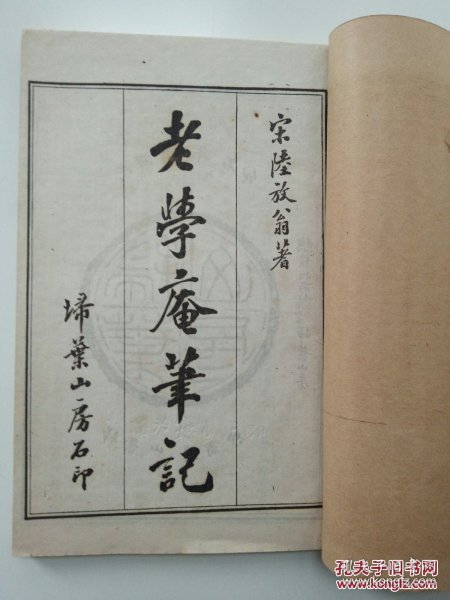 宋陸放翁著
老學庵筆記
埽葉山房石印
孔夫子旧书网
www.kongfz.com